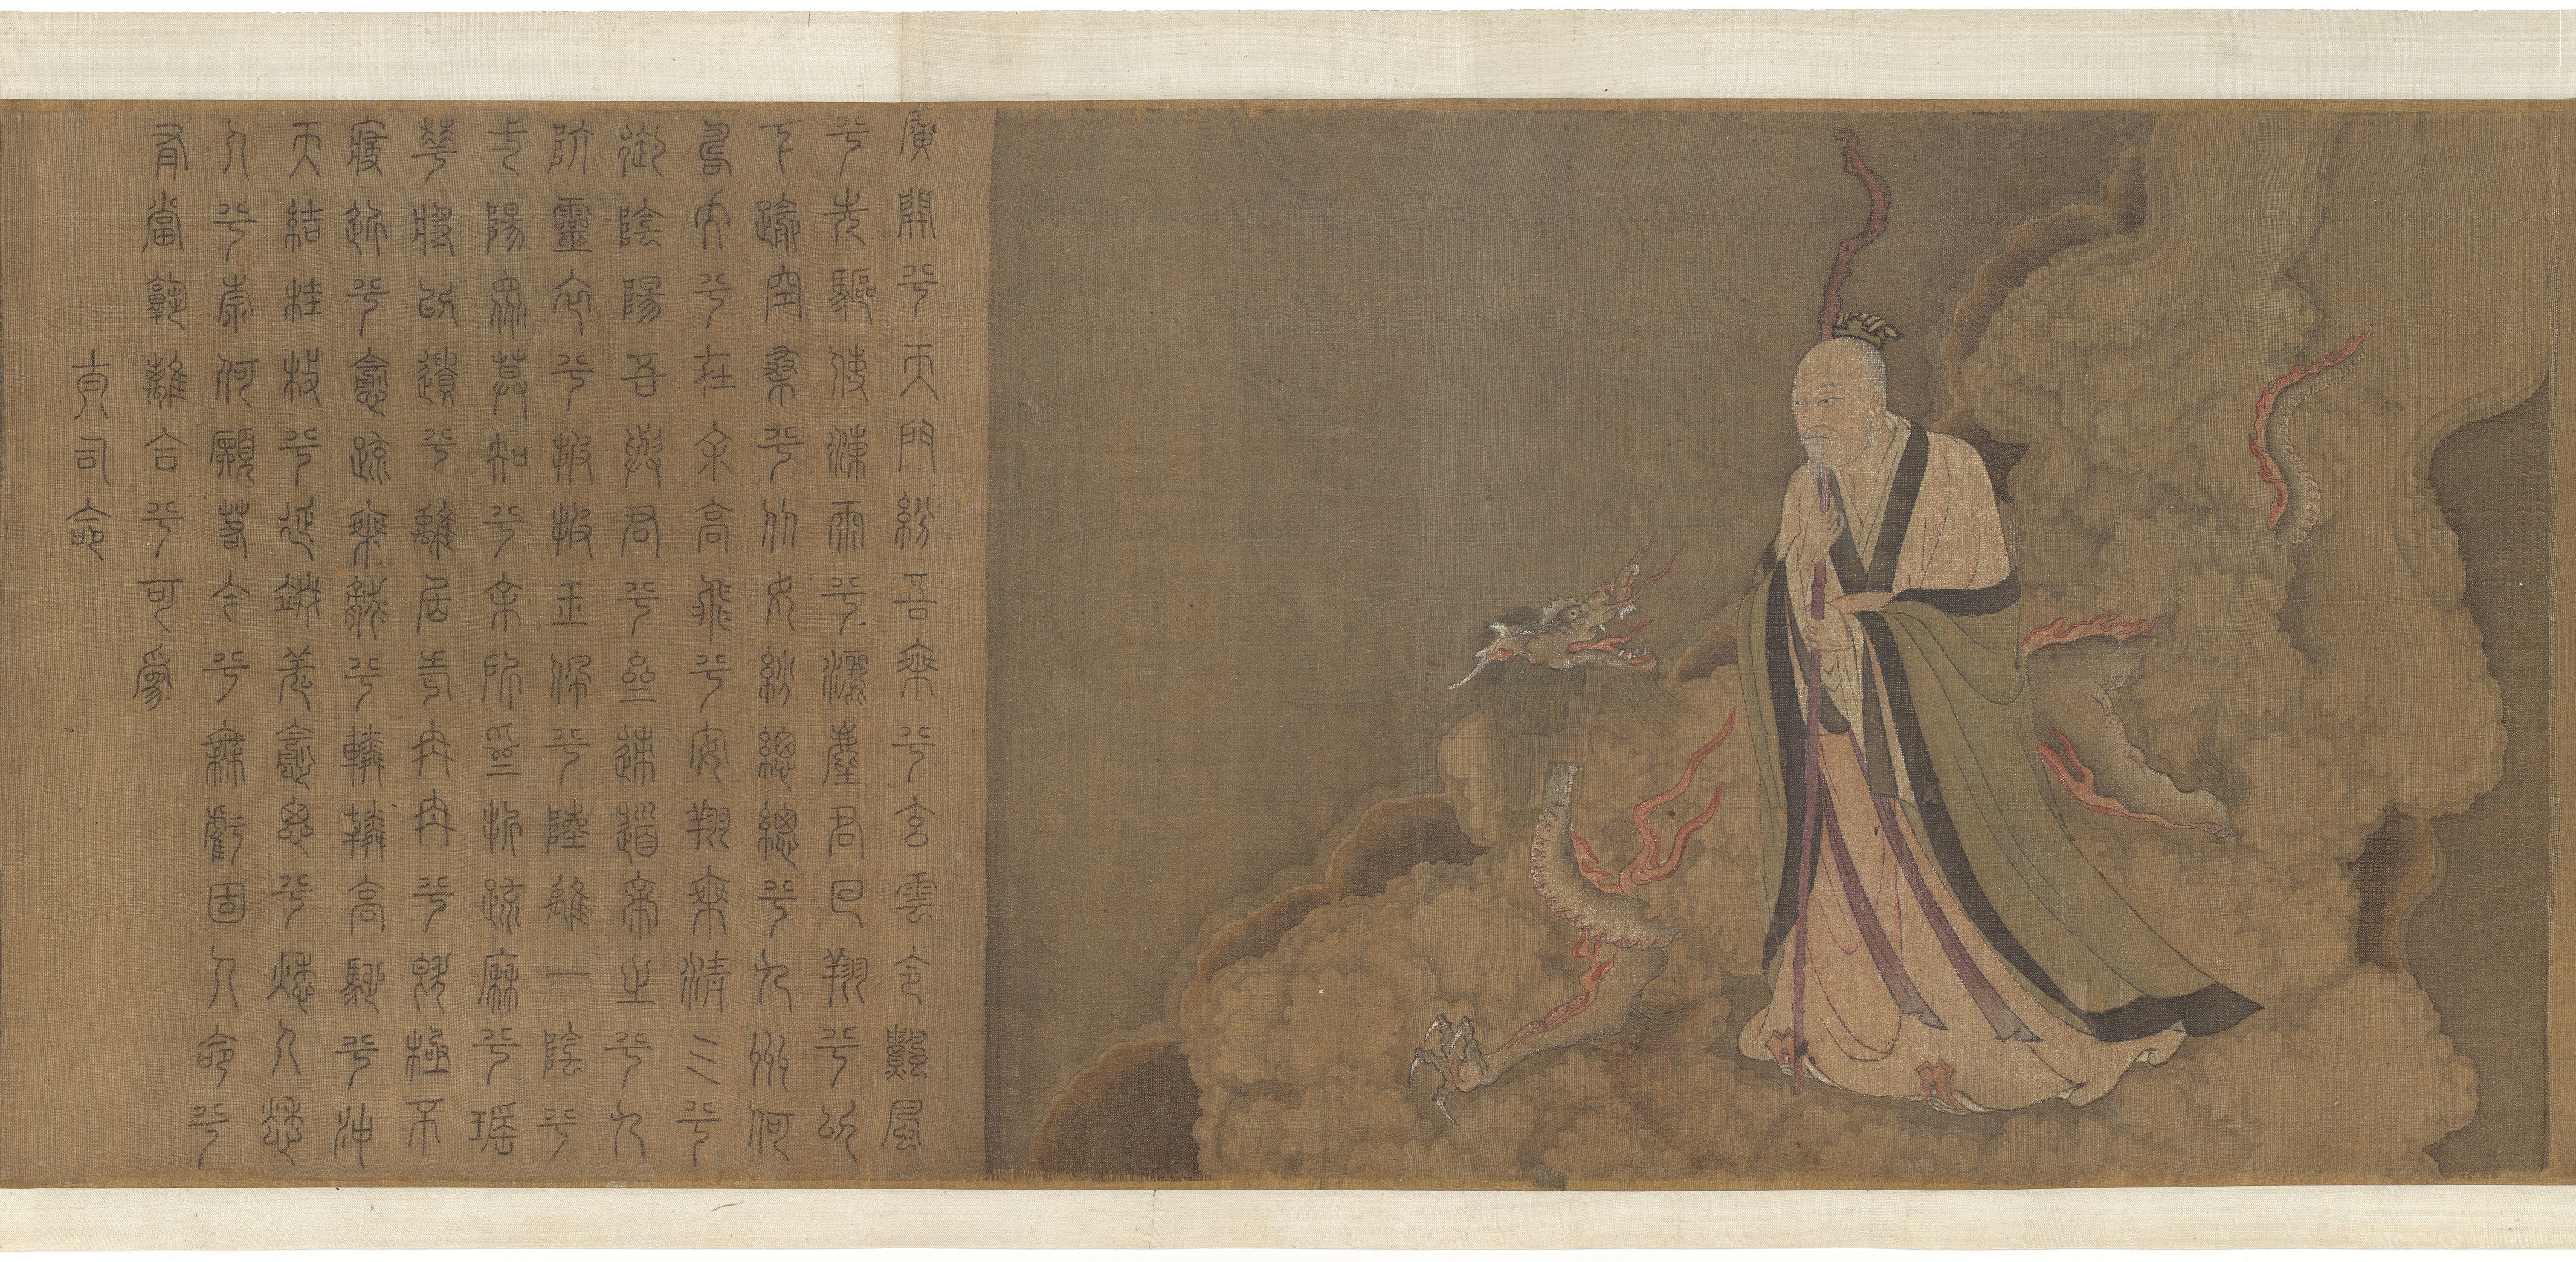 廣開兮天門紛吾乘兮玄雲令飄風
兮先驅使涷雨兮灑塵君回翔兮以
下踰空桑兮從女紛總總兮九州何
壽夭兮在余高飛兮安翔乘清气兮
御陰陽吾與君兮齋速導帝之兮九
阬靈衣兮披披玉佩兮陸離一陰兮
一陽眾莫知兮余所為折疏麻兮瑤
華將以遺兮離居老冉冉兮既極不
寖近兮愈疏乘龍兮轔轔高馳兮沖
天結桂枝兮延竚羌愈思兮愁人愁
人兮柰何願若今兮無虧固人命兮
有當孰離合兮可為
大司命